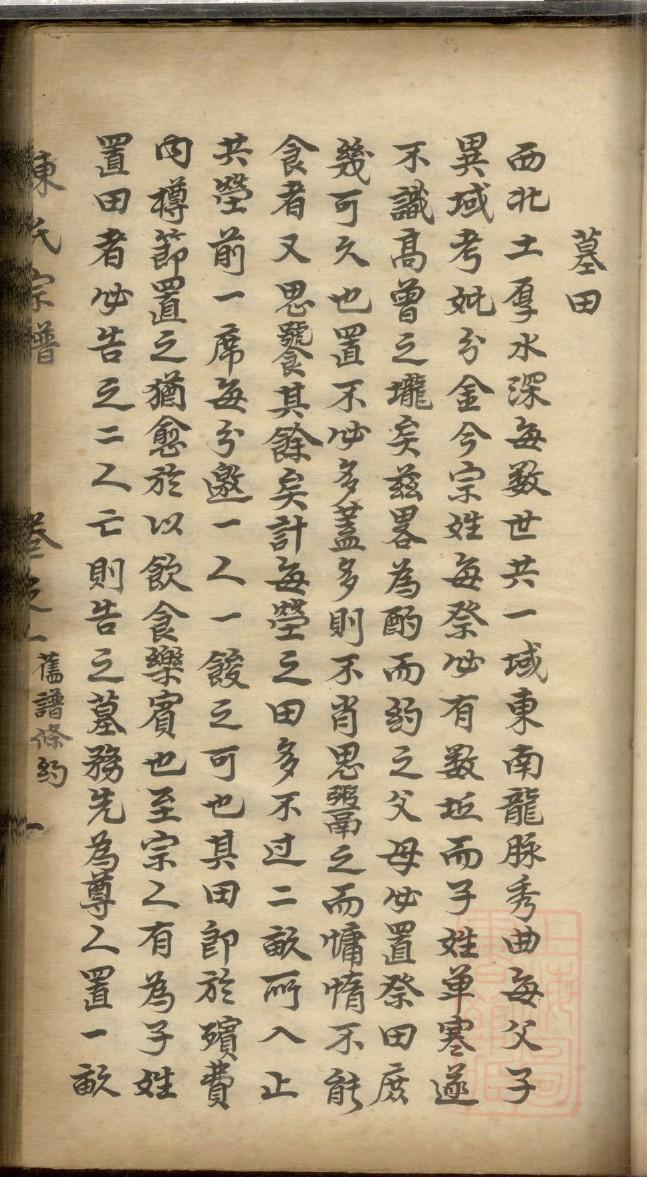 墓田
西北土厚水深每数世共一域東南龍脉秀曲每父子
異域考妣分金今宗姓每祭必有数坵而子姓单寒遂
不識高曾之壠矣兹畧為酌而約之父母必置祭田庶
幾可久也置不必多蓋多則不肖思鬻之而慵惰不能
食者又思饕其餘矣計每塋之田多不过二畝所入止
共塋前一席每分邀一人一餕之可也其田即於殯費
内樽節置之猶愈於以飲食樂賓也至宗人有為子姓
置田者必告之二人亡則告之墓務先為尊人置一畝
陳氏宗譜
卷之一
舊譜條約
一